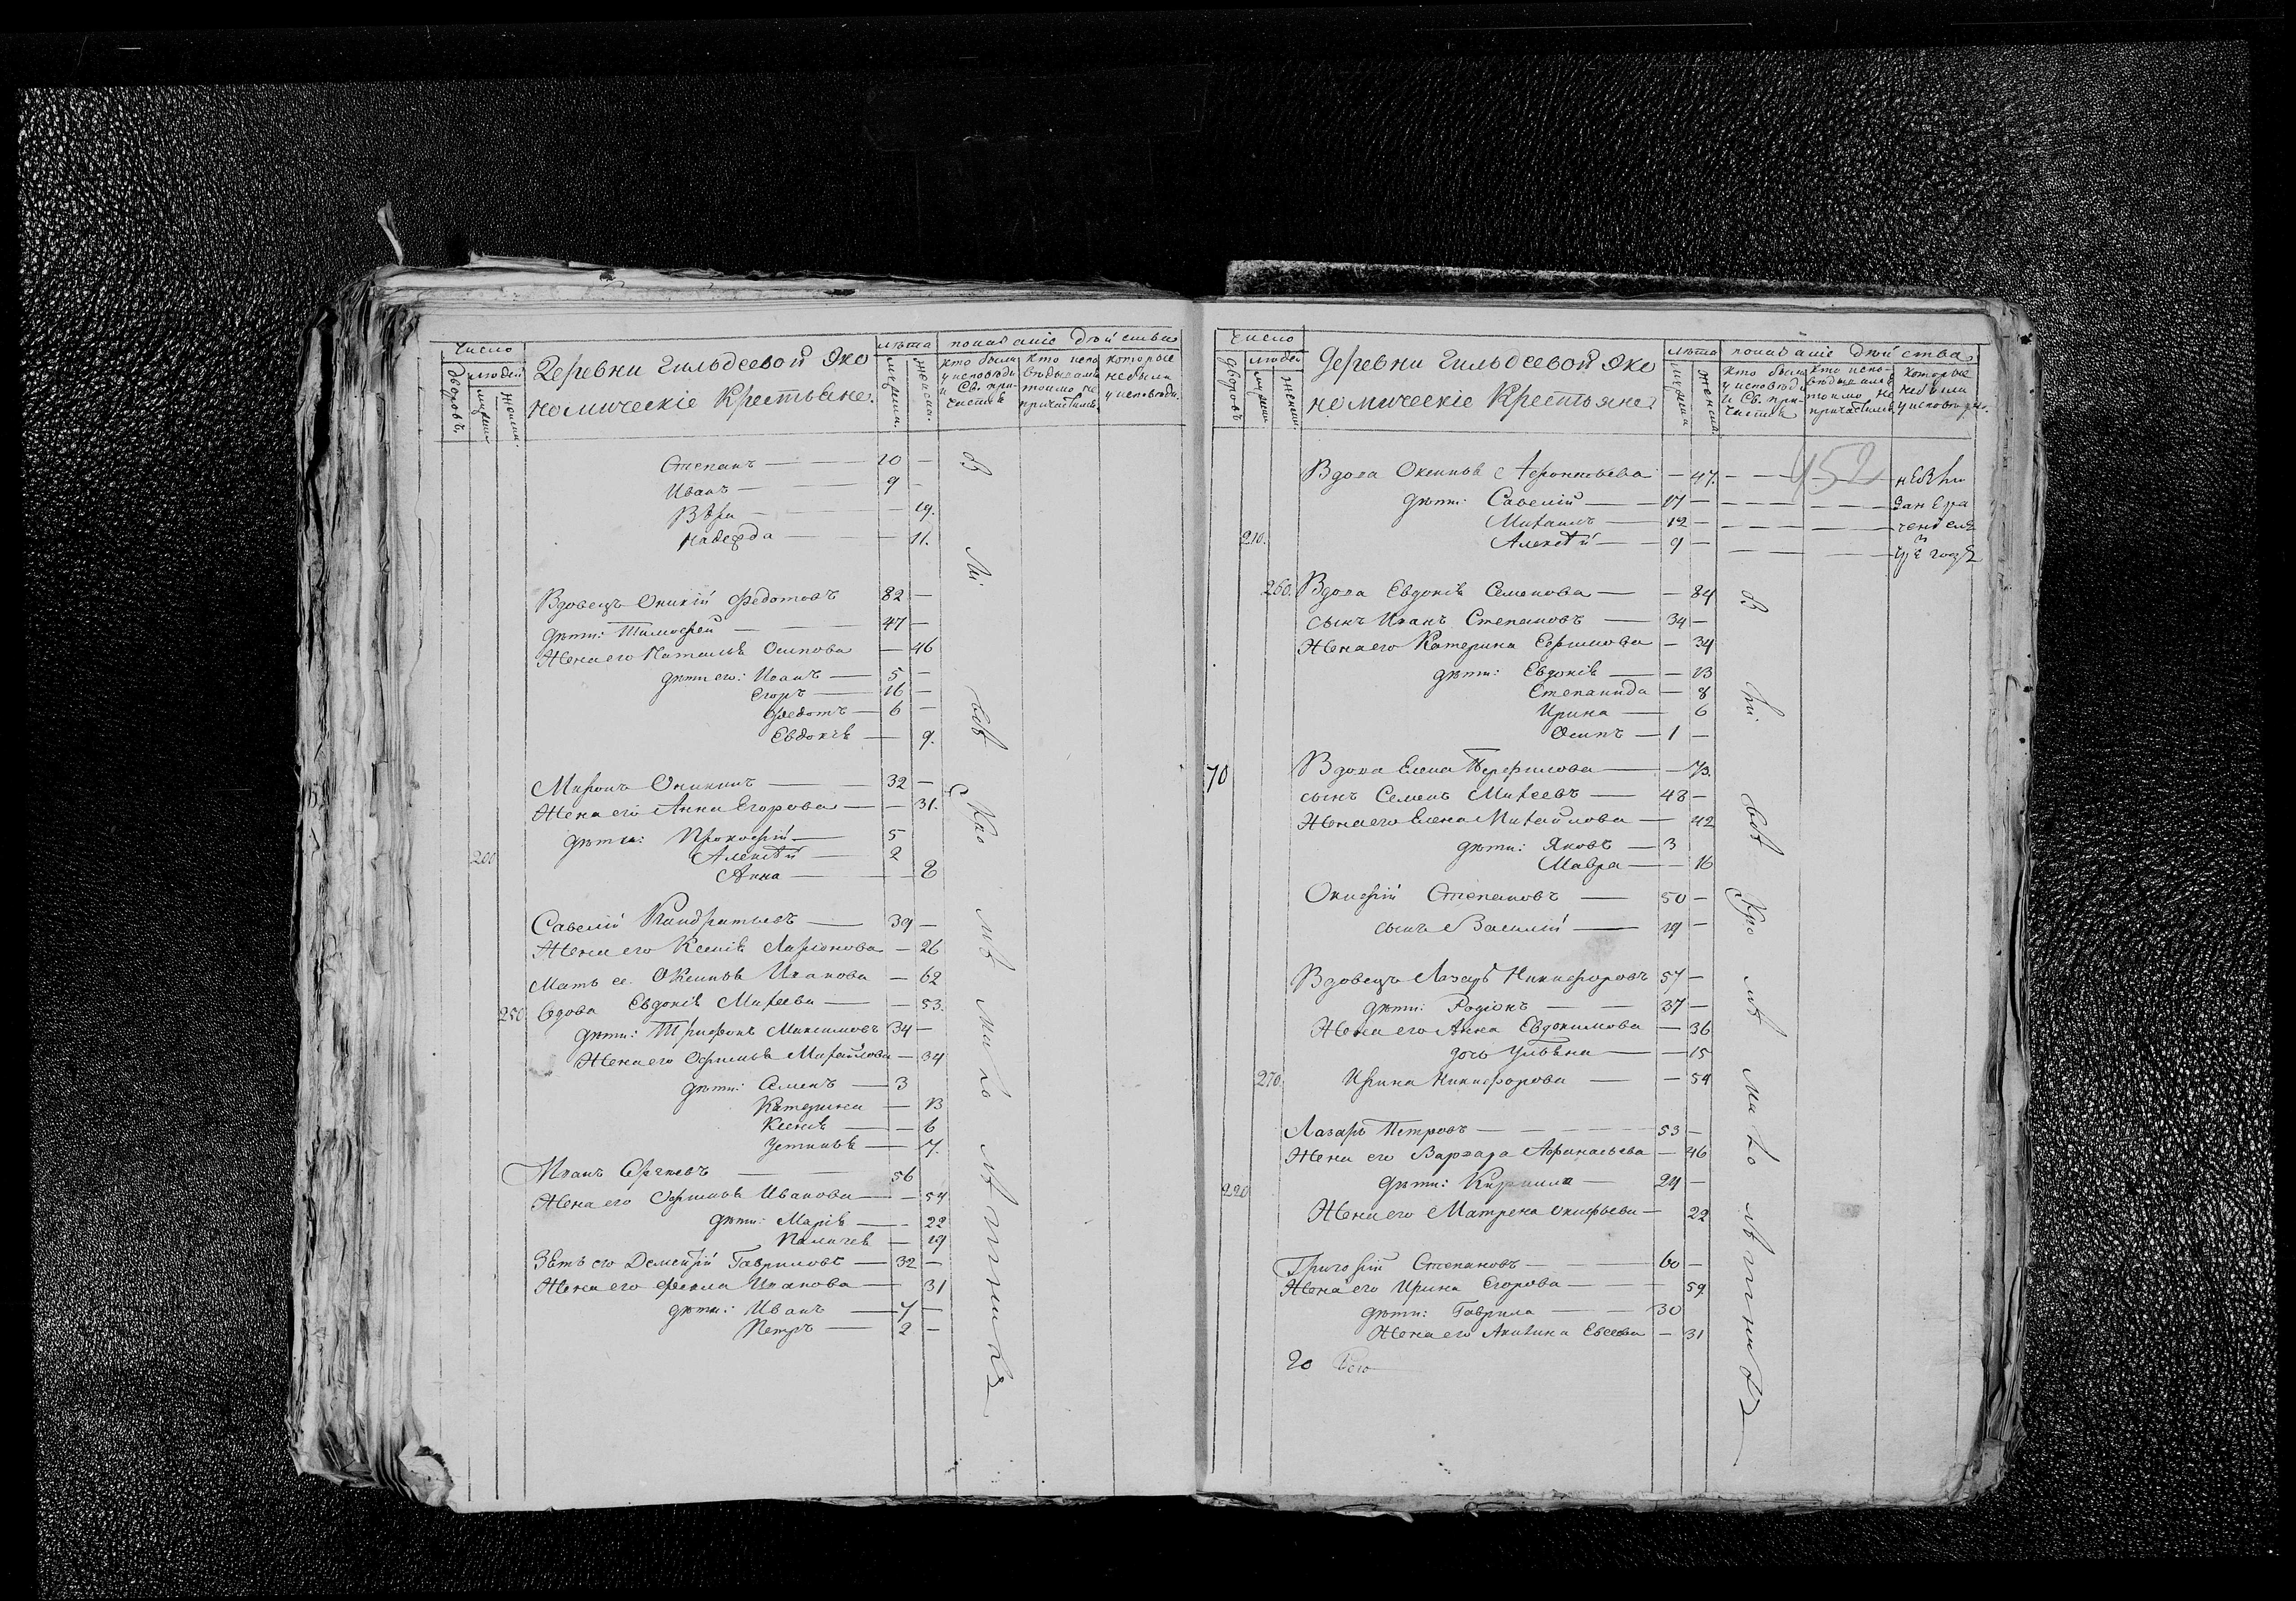 число
лѣта
показаніе дѣйства
дворовъ
людей
мужеска
женска
Деревни Гильдеевой Эко
номическіе Крестьяне.
мужеска
женска
кто были у исповѣди и Св. при-частія
кто испо вѣдывались токмо не причастились
которые небыли у исповѣди.
Степанъ — 10 —
Иванъ — 9 —
Вѣра — 19.
Надежда — 11.
Вдовецъ Оникій Федотовъ 82 —
дѣти: Тимофей — 47 —
Жена его Наталья Осипова — 46
дѣти его: Иванъ — 5 —
Егоръ — 16 —
Федотъ — 6 —
Евдокія — 9.
Миронъ Оникинъ — 32 —
Жена его Анна Егорова — 31.
дѣти: Прокофій — 5
200 Алексѣй — 2
Анна — 8
Савелій Кандратьевъ — 39 —
Жена его Ксенія Ларіонова — 26
Мать ее Оксинья Иванова — 62
250. Вдова Евдокія Михеева — 53.
дѣти: Трифонъ Максимовъ 34 —
Жена его Офимья Михайлова — 34
дѣти: Семенъ — 3
Катерина — 13
Ксенія — 6
Устинья — 7.
Иванъ Сергѣевъ — 56
Жена его Офимья Иванова — 54
дѣти: Марія — 22
Пелагея — 19
Зять его Дементій Гавриловъ — 32 —
Жена его Фекла Иванова — 31
дѣти: Иванъ — 7 —
Петръ — 2 —
число
лѣта
показаніе дѣйства
дворовъ
людей
мужеска
женска
Деревни Гильдеевой Эко
номическіе Крестьяне
мужеска
женска
кто были у исповѣди и Св. при-частія
кто испо-вѣдывались токмо не причастились
которые небыли у исповѣди.
452
Вдова Оксинья Леонтьева — 47. —
дѣти: Савелій — 17 —
Михаилъ — 12 —
210. Алексѣй — 9 —
260. Вдова Евдокія Семенова — 84
сынъ Иванъ Степановъ — 34 —
Жена его Катерина Ефимова — 34
дѣти: Евдокія — 13
Степанида — 8
Ирина — 6
Осипъ — 1 —
70 Вдова Елена Перфилова — 73.
сынъ Семенъ Михеевъ — 48 —
Жена его Елена Михайлова — 42
дѣти: Яковъ — 3
Мавра — 16
Онисфій Степановъ — 50 —
сынъ Василій — 19 —
Вдовецъ Лазарь Никифоровъ 57 —
дѣти: Родіонъ — 37 —
Жена его Анна Евдокимова — 36
дочь Ульяна — 15
270. Ирина Никифорова — 54
Лазарь Петровъ — 53 —
Жена его Варвара Афанасьева — 46
220 дѣти: Кирилла — 24 —
Жена его Матрена Онисфьева — 22
Григорій Степановъ — 60 —
Жена его Ирина Егорова — 59
дѣти: Гаврила — 30
Жена его Акилина Евсеева — 31